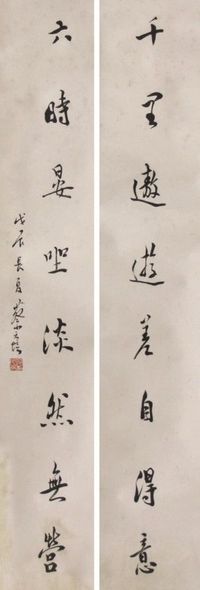 千里遨遊差自得意
六時晏坐淡然無營
戊辰長夏